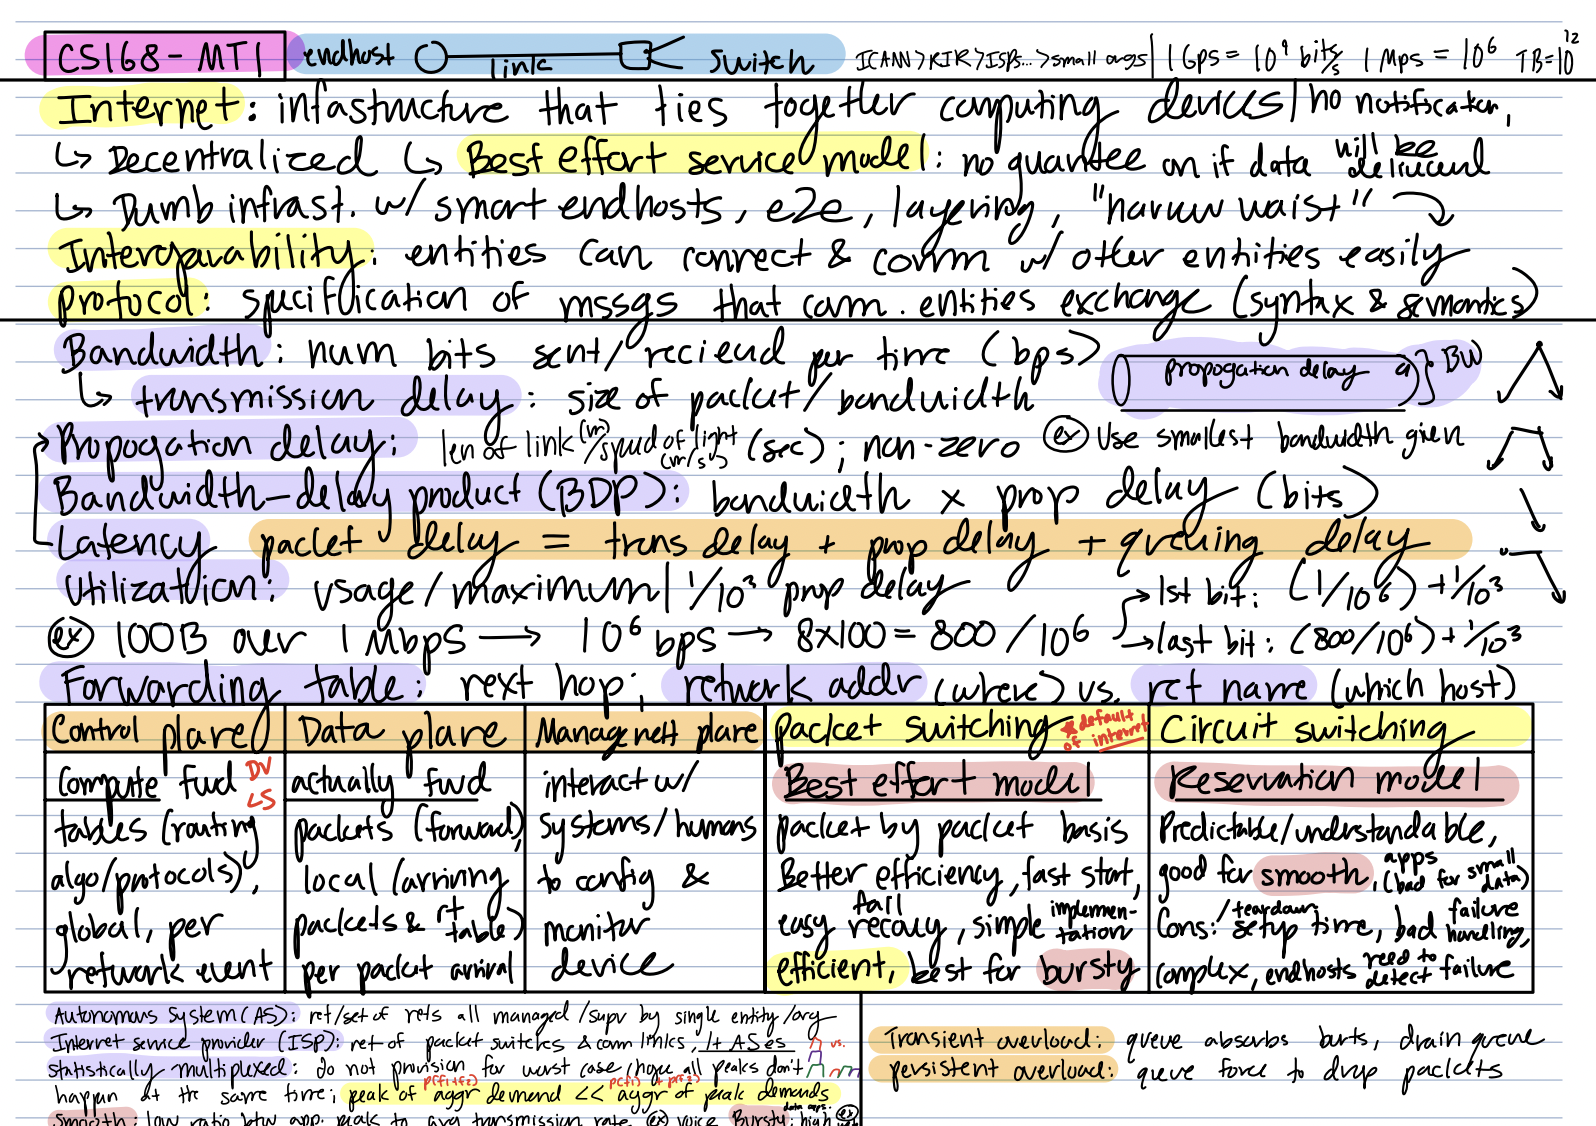 CS168-MT1 endhost link switch ICANN>RIR>ISPs...>small orgs | 1 Gps = 10^9 bits/s 1 Mps = 10^6 TB=10^12
Internet: infastructure that ties together computing devices | no notification,
↳ Decentralized ↳ Best effort service model: no guantee on if data will be delivered
↳ Dumb infrast. w/ smart endhosts, e2e, layering, "narrow waist"
Interoparability: entities can connect & comm w/ other entities easily
protocol: specification of mssgs that com. entities exchange (syntax & semantics)
Bandwidth: num bits sent/recieved per time (bps) propogation delay } BW
↳ transmission delay: size of packet/bandwidth
Propogation delay: len of link (m)/speed of light (m/s) (sec); non-zero (ex) Use smallest bandwidth given
Bandwidth-delay product (BDP): bandwidth x prop delay (bits)
Latency packet delay = trans delay + prop delay + queuing delay
Utilization: usage/maximum | 1/10^3 prop delay → 1st bit: (1/10^6) + 1/10^3
(ex) 100B over 1 Mbps → 10^6 bps → 8x100 = 800/10^6 → last bit: (800/10^6) + 1/10^3
Forwarding table: next hop; network addr (where) vs. net name (which host)
Control plane Data plane Management plane packet switching *default of internet Circuit switching
Compute fwd DV LS actually fwd interact w/ Best effort model Reservation model
tables (routing packets (forward), systems/humans packet by packet basis Predictable/understandable,
algo/protocols), local (arriving to config & Better efficiency, fast start, good for smooth apps, (bad for small data)
global, per packets & rt table) monitor easy fail recovy, simple implemen-tation Cons: /teardown setup time, bad failure handling,
network event per packet arrival device efficient, best for bursty complex, endhosts need to detect failure
Autonomous System (AS): net/set of nets all managed/supv by single entity/org
Internet service provider (ISP): net of packet switches & comm links, 1+ ASes vs.
Transient overload: queue absorbs bursts, drain queue
statistically multiplexed: do not provision for worst case/hope all peaks don't
persistent overload: queue force to drop packets
happen at the same time; peak of aggr demand << aggr of peak demands
p(f1+f2) p(f1) + p(f2)
Smooth: low ratio btw app. peak to avg transmission rate (ex) voice Bursty: high data apps. (ex)